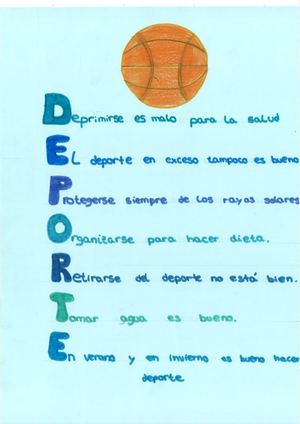 Deprimirse es malo para la salud
EL deporte en exceso tampoco es bueno
Protegerse siempre de los rayos solares
Organizarse para hacer dieta.
Retirarse del deporte no está bien.
Tomar agua es bueno.
En verano y en invierno es bueno hacer
deporte